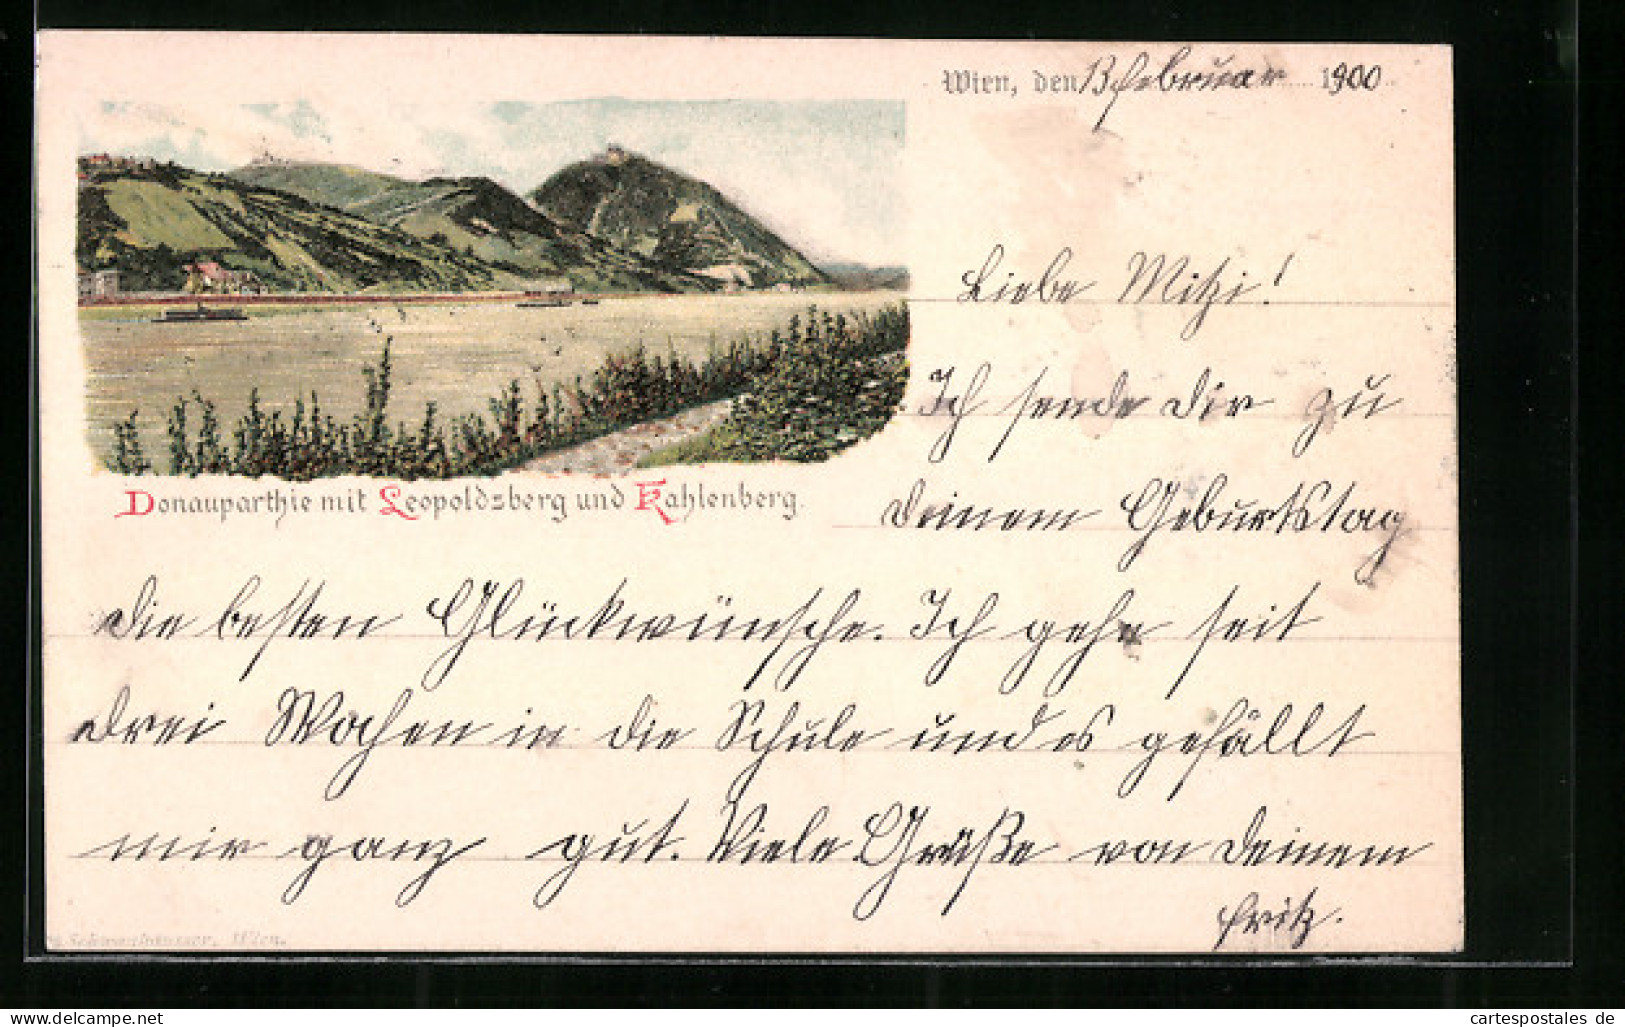 Wien, den 13 februar 1900
Liebe Mitzi!
Ich sende dir zu
deinem Geburtstag
die besten Glückwünsche. Ich gehe seit
drei Wochen in die Schule und es gefällt
mir ganz gut. Viele Grüße von deinem
fritz.
Donauparthie mit Leopoldsberg und Kahlenberg.
Schwenhäusser, Wien.
www.delcampe.net
cartespostales de